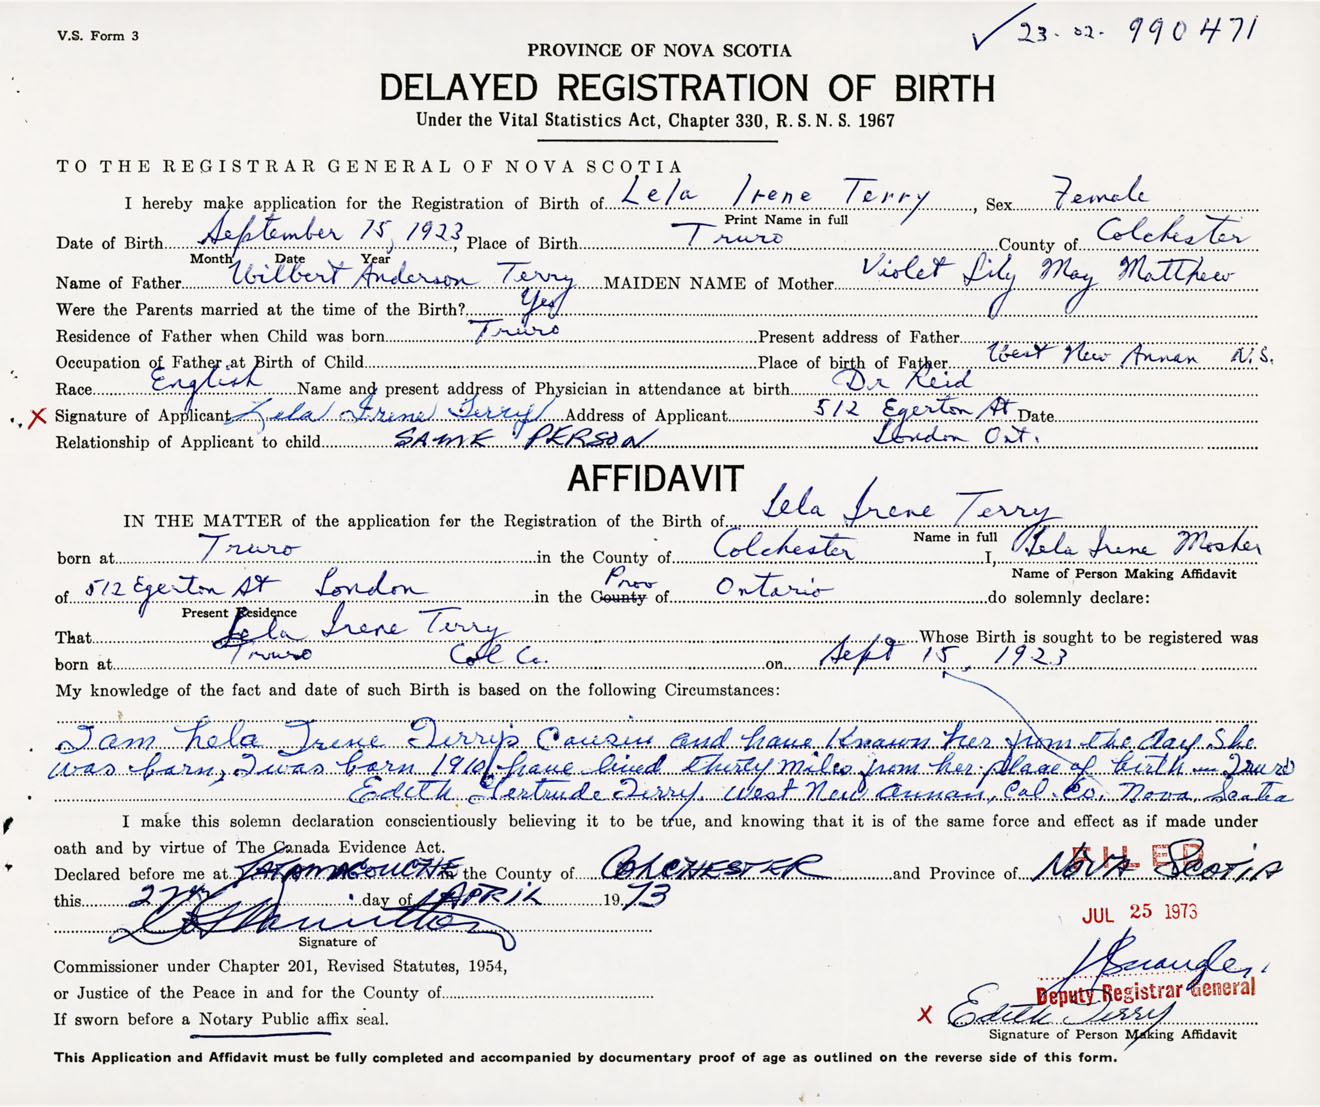 V.S. Form 3
✓ 23-02- 990471
PROVINCE OF NOVA SCOTIA
DELAYED REGISTRATION OF BIRTH
Under the Vital Statistics Act, Chapter 330, R. S. N. S. 1967
TO THE REGISTRAR GENERAL OF NOVA SCOTIA
I hereby make application for the Registration of Birth of Lela Irene Terry, Sex Female
Print Name in full
Date of Birth September 15, 1923, Place of Birth Truro County of Colchester
Month Date Year
Name of Father Wilbert Anderson Terry MAIDEN NAME of Mother Violet Lily May Matthew
Were the Parents married at the time of the Birth? Yes
Residence of Father when Child was born Truro Present address of Father
Occupation of Father at Birth of Child Place of birth of Father West New Annan N.S.
Race English Name and present address of Physician in attendance at birth Dr Reid
X Signature of Applicant Lela Irene Terry Address of Applicant 512 Egerton St Date
Relationship of Applicant to child SAME PERSON London Ont.
AFFIDAVIT
IN THE MATTER of the application for the Registration of the Birth of Lela Irene Terry
Name in full
born at Truro in the County of Colchester I, Lela Irene Mosher
Name of Person Making Affidavit
of 512 Egerton St London in the County Prov of Ontario do solemnly declare:
Present Residence
That Lela Irene Terry Whose Birth is sought to be registered was
born at Truro Col Co. on Sept 15, 1923
My knowledge of the fact and date of such Birth is based on the following Circumstances:
I am Lela Irene Terry's Cousin and have Known her from the day She
was born, I was born 1910 have lived thirty miles from her place of birth - Truro
Edith Gertrude Terry. West New Annan, Col. Co. Nova Scotia
I make this solemn declaration conscientiously believing it to be true, and knowing that it is of the same force and effect as if made under
oath and by virtue of The Canada Evidence Act.
FILED
Declared before me at TATAMAGOUCHE in the County of COLCHESTER and Province of NOVA SCOTIA
this 27th day of APRIL 19 73
JUL 25 1973
Signature of
Commissioner under Chapter 201, Revised Statutes, 1954,
or Justice of the Peace in and for the County of
Deputy Registrar General
If sworn before a Notary Public affix seal.
X Edith Terry
Signature of Person Making Affidavit
This Application and Affidavit must be fully completed and accompanied by documentary proof of age as outlined on the reverse side of this form.